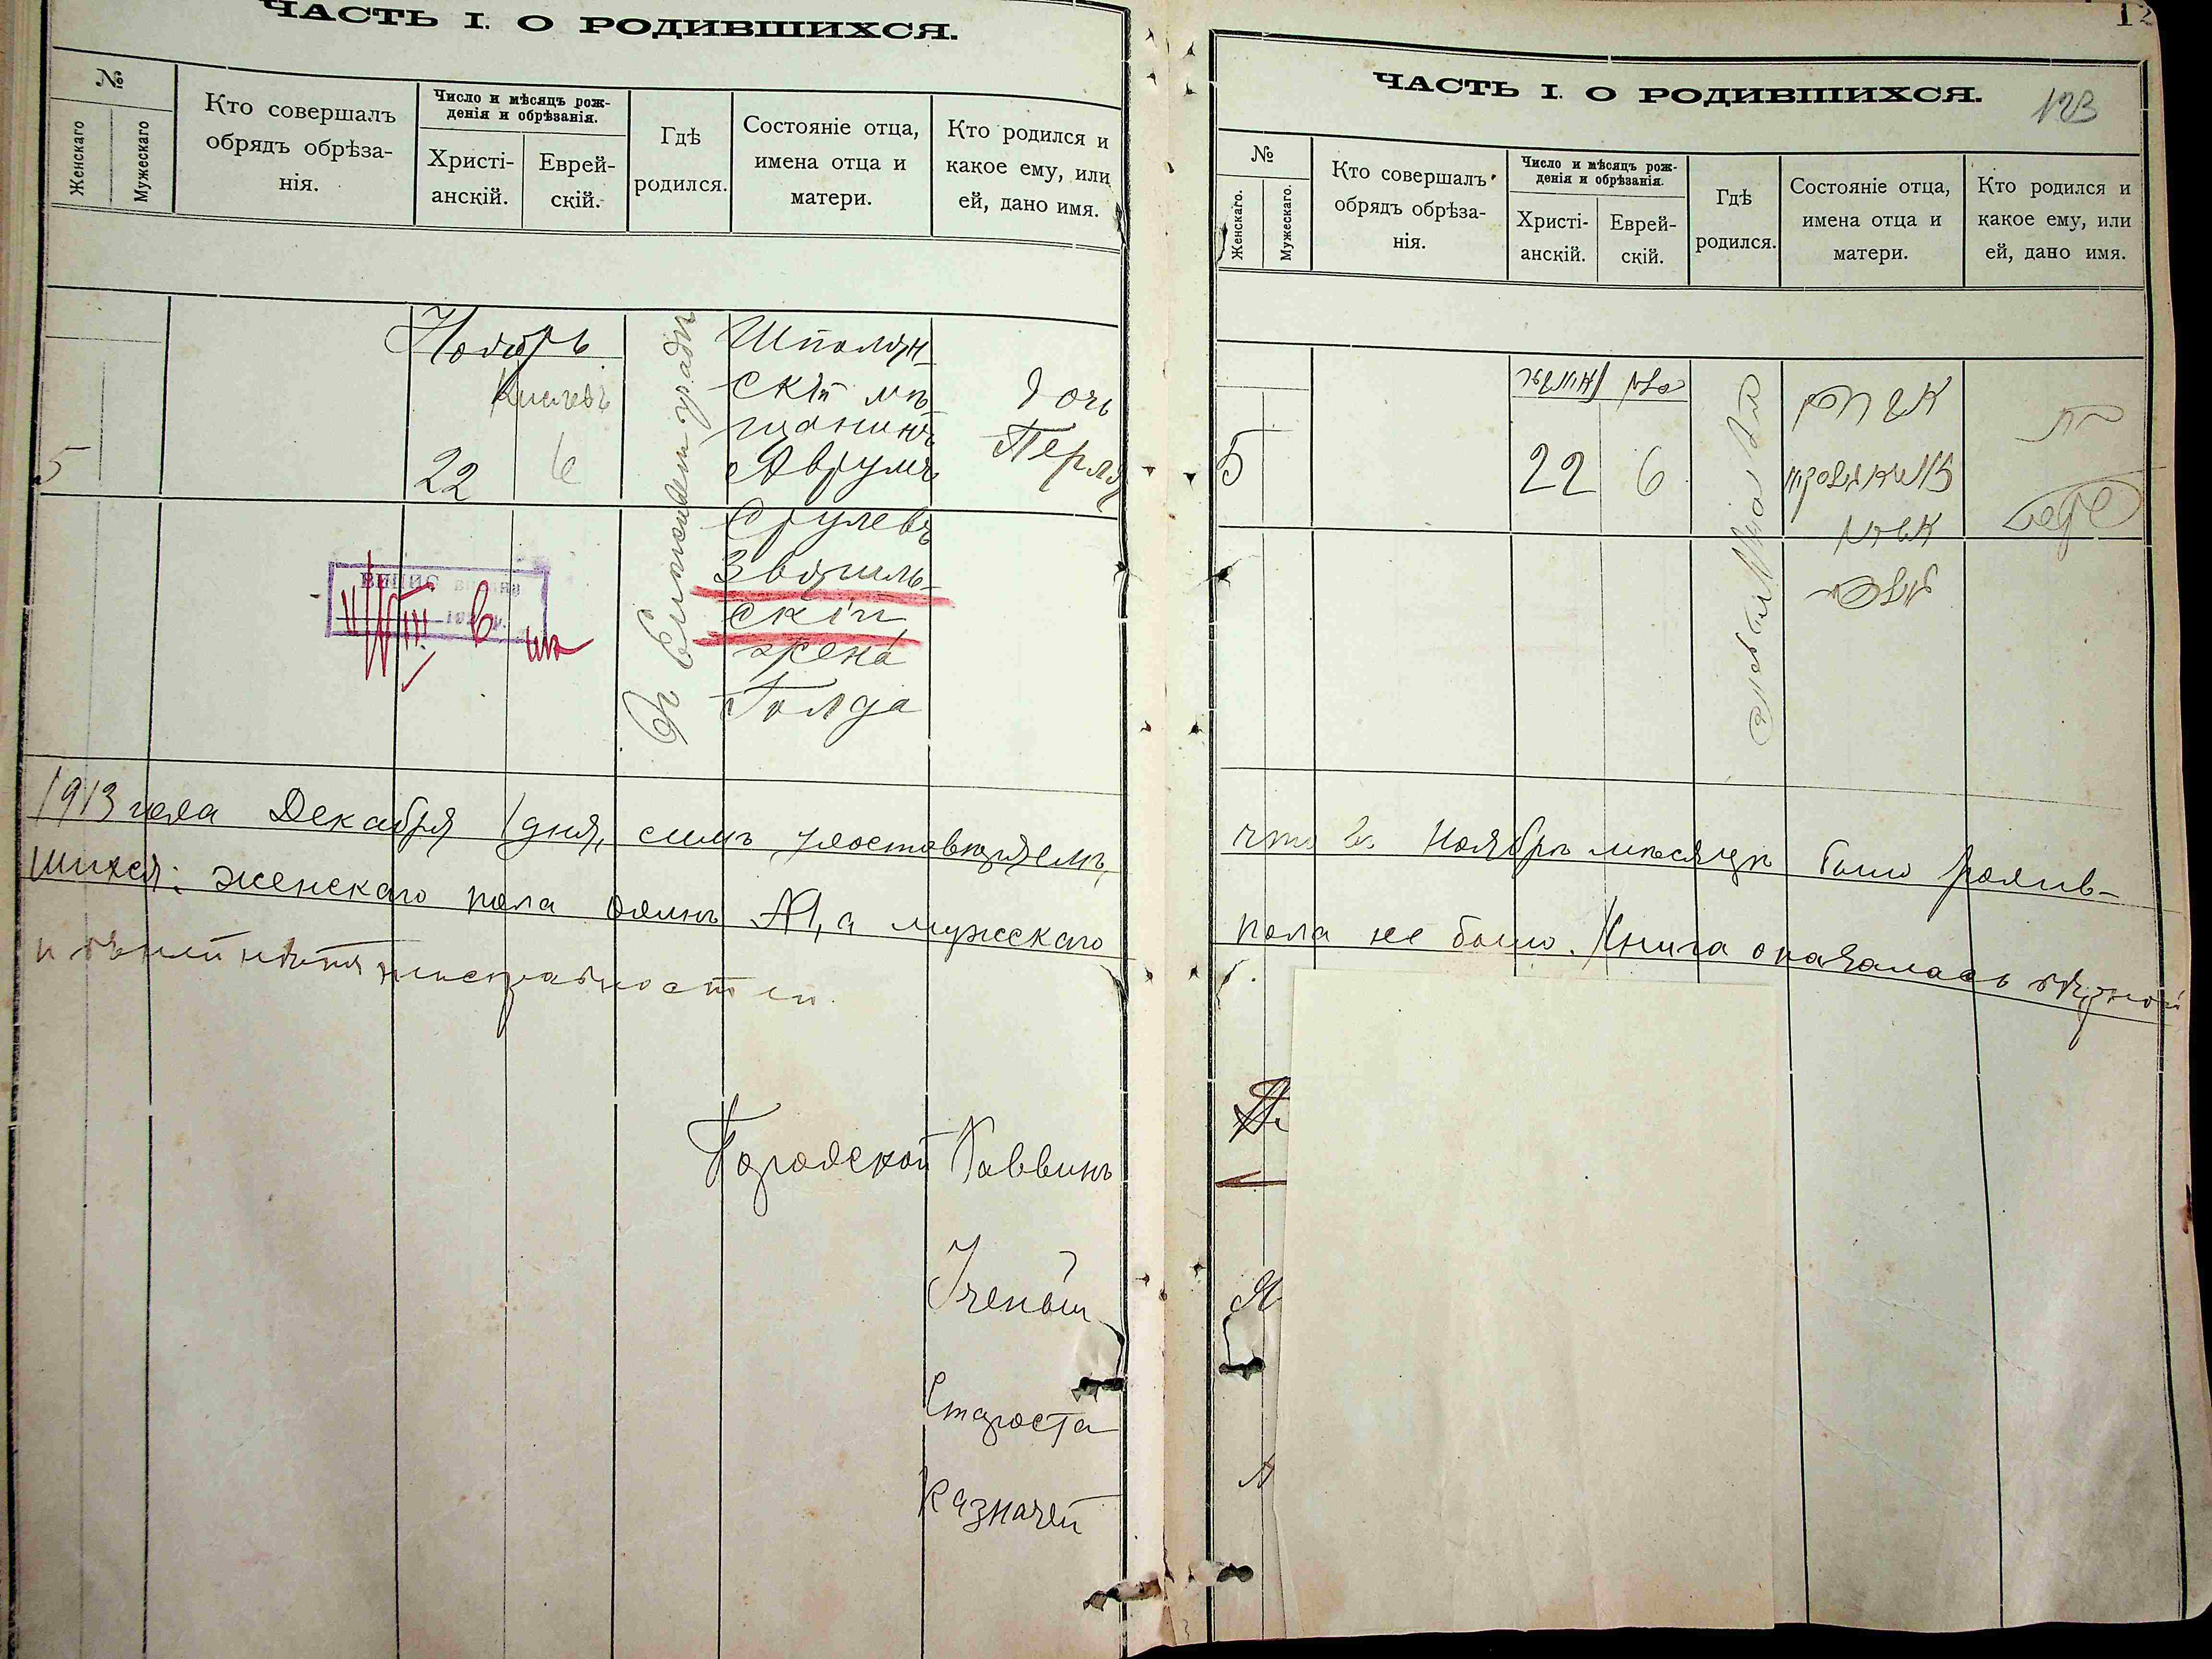 ЧАСТЬ I. О РОДИВШИХСЯ.
№
Женскаго
Мужескаго
Кто совершалъ
обрядъ обрѣза-
нія.
Число и мѣсяцъ рож-
денія и обрѣзанія.
Христі-
анскій.
Еврей-
скій.
Гдѣ
родился.
Состояніе отца,
имена отца и
матери.
Кто родился и
какое ему, или
ей, дано имя.
Ноябрь
Кислевъ
5
22
6
Шполян
скій мѣ
щанинъ
Аврумъ
Срулевъ
Звониль
скій
жена
Голда
дочь
Перля
1913 года Декабря 1 дня, симъ удостовѣряемъ,
шихся: женскаго пола одинъ №1, а мужескаго
и въ ней нѣтъ неисправностей.
Городской Раввинъ
Ученый
Староста
Казначей
ЧАСТЬ I. О РОДИВШИХСЯ.
123
№
Женскаго.
Мужескаго.
Кто совершалъ
обрядъ обрѣза-
нія.
Число и мѣсяцъ рож-
денія и обрѣзанія.
Христі-
анскій.
Еврей-
скій.
Гдѣ
родился.
Состояніе отца,
имена отца и
матери.
Кто родился и
какое ему, или
ей, дано имя.
5
22
6
что въ Ноябрѣ мѣсяцѣ было родив-
пола не было. Книга оказалась вѣрной